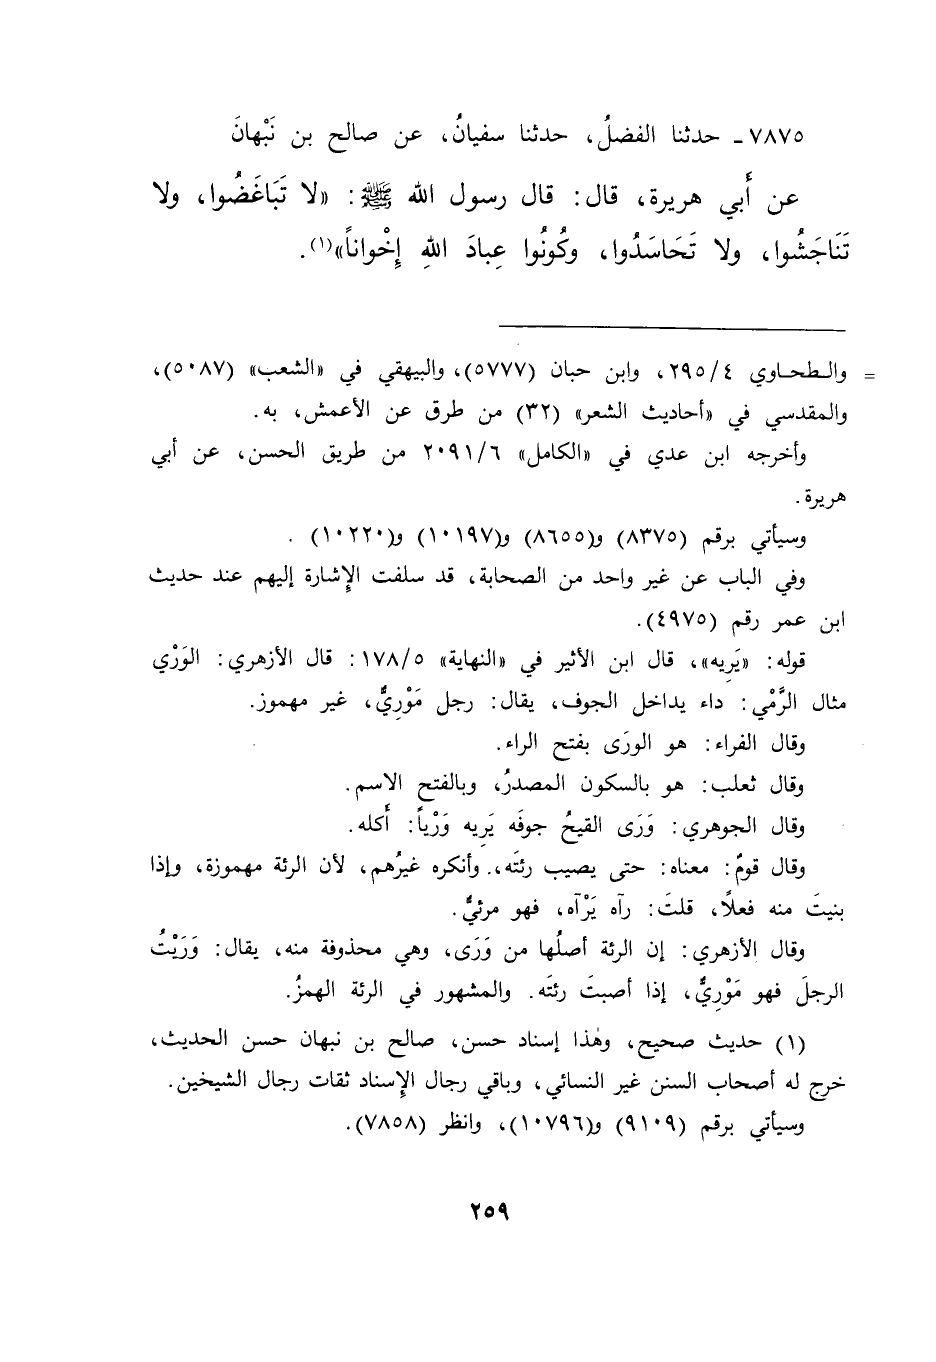 ٧٨٧٥ ـ حدثنا الفضلُ، حدثنا سفيانُ، عن صالح بن نَبْهانَ
عن أَبي هريرة، قال: قال رسول الله ﷺ: «لا تَبَاغَضُوا، ولا
تَنَاجَشُوا، ولا تَحَاسَدُوا، وكُونُوا عِبادَ اللهِ إِخْواناً»(١).
= والطحاوي ٢٩٥/٤، وابن حبان (٥٧٧٧)، والبيهقي في «الشعب» (٥٠٨٧)،
والمقدسي في «أحاديث الشعر» (٣٢) من طرق عن الأعمش، به.
وأخرجه ابن عدي في «الكامل» ٢٠٩١/٦ من طريق الحسن، عن أبي
هريرة.
وسيأتي برقم (٨٣٧٥) و(٨٦٥٥) و(١٠١٩٧) و(١٠٢٢٠) .
وفي الباب عن غير واحد من الصحابة، قد سلفت الإشارة إليهم عند حديث
ابن عمر رقم (٤٩٧٥).
قوله: «يَرِيه»، قال ابن الأثير في «النهاية» ١٧٨/٥: قال الأزهري: الوَرْي
مثال الرَّمْي: داء يداخل الجوف، يقال: رجل مَوْرِيٌّ، غير مهموز.
وقال الفراء: هو الورَى بفتح الراء.
وقال ثعلب: هو بالسكون المصدرُ، وبالفتح الاسم.
وقال الجوهري: وَرَى القيحُ جوفَه يَرِيه وَرْياً: أَكله.
وقال قومٌ: معناه: حتى يصيب رئتَه، وأنكره غيرُهم، لأن الرئة مهموزة، وإذا
بنيتَ منه فعلاً، قلتَ: رآه يَرْآه، فهو مرئيٌّ.
وقال الأزهري: إن الرئة أصلُها من وَرَى، وهي محذوفة منه، يقال: وَرَيْتُ
الرجلَ فهو مَوْرِيٌّ، إذا أصبتَ رئتَه. والمشهور في الرئة الهمزُ.
(١) حديث صحيح، وهٰذا إسناد حسن، صالح بن نبهان حسن الحديث،
خرج له أصحاب السنن غير النسائي، وباقي رجال الإسناد ثقات رجال الشيخين.
وسيأتي برقم (٩١٠٩) و(١٠٧٩٦)، وانظر (٧٨٥٨).
٢٥٩